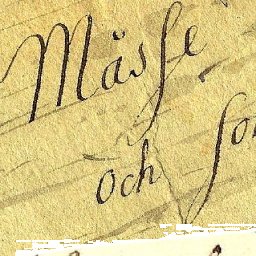 Måsse
och so